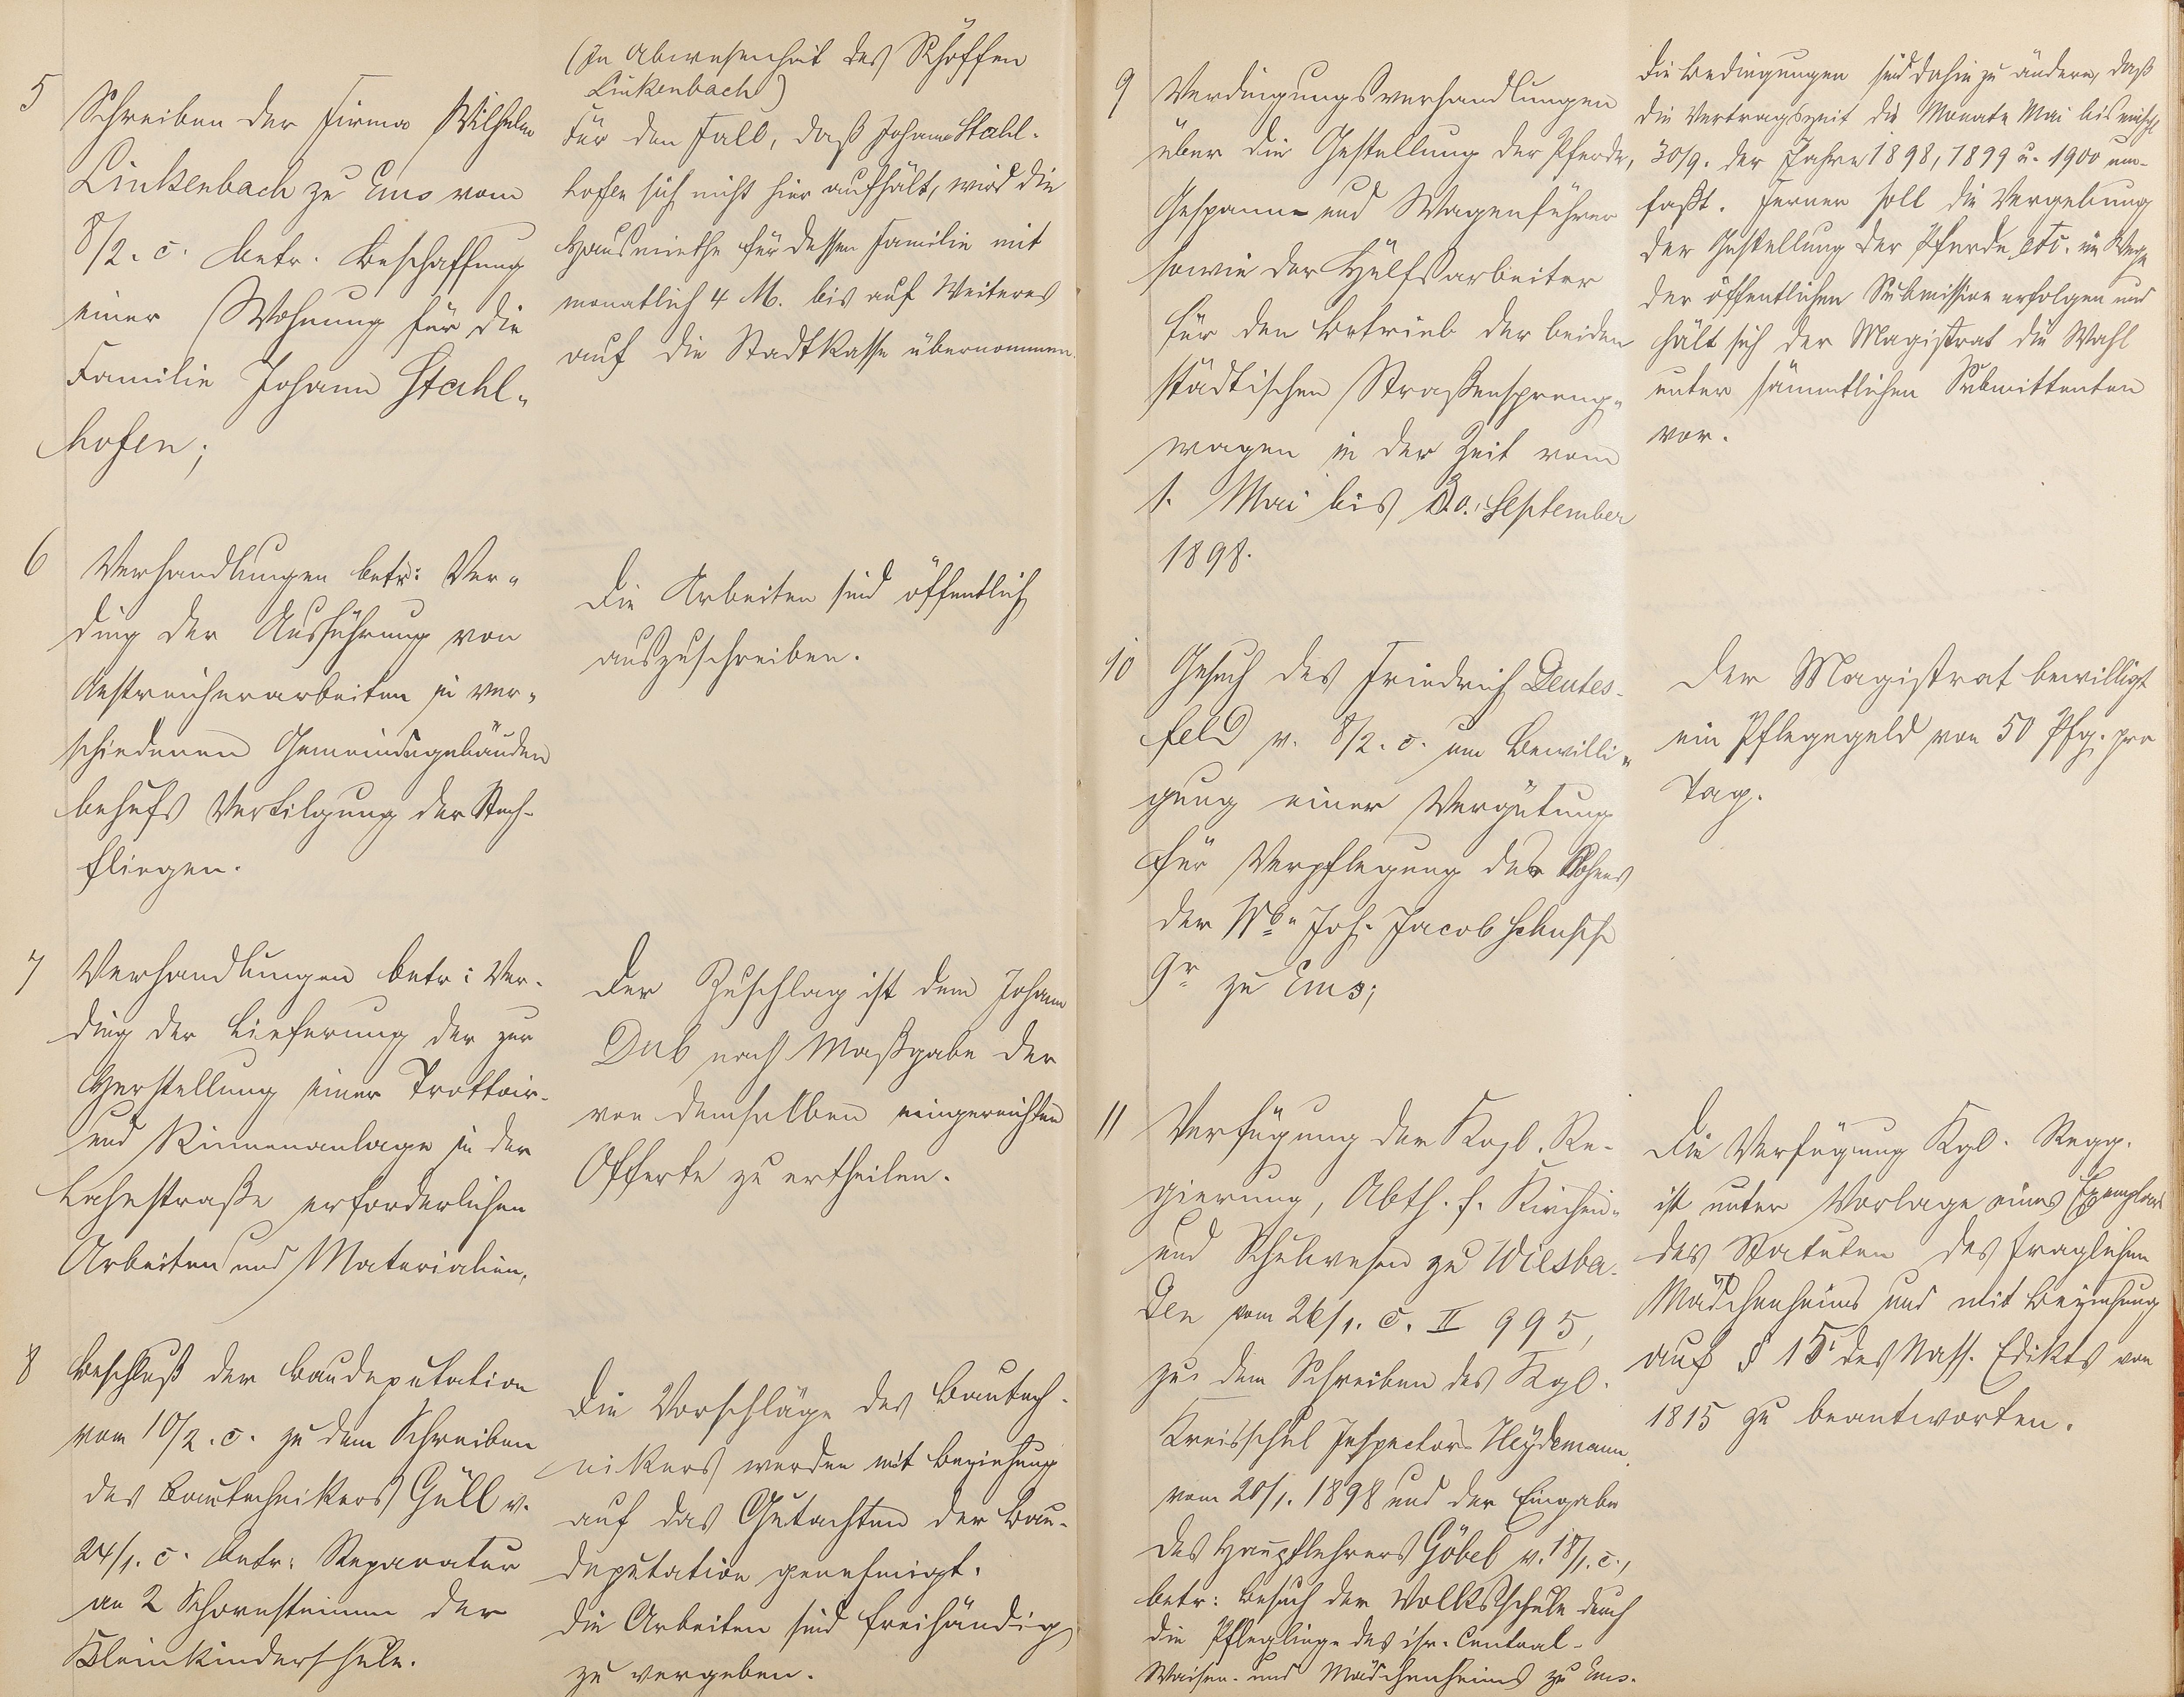 5
Schreiben der Firma Wilhelm
Linkenbach zu Ems vom
8/2. c. betr. Beschaffung
einer Wohnung für die
Familie Johann Stahl-
hofen;
(In Abwesenheit des Schöffen
Linkenbach)
Für den Fall, daß Johann Stahl-
hofen sich nicht hier aufhält, wird die
Hausmiethe für dessen Familie mit
monatlich 4 M. bis auf Weiteres
auf die Stadtkasse übernommen.
6
Verhandlungen betr: Ver-
ding der Ausführung von
Anstreicherarbeiten in ver-
schiedenen Gemeindegebäuden
behufs Vertilgung der Stech-
fliegen.
Die Arbeiten sind öffentlich
auszuschreiben.
7
Verhandlungen betr: Ver-
ding der Lieferung der zur
Herstellung einer Trottoir-
und Rinnenanlage in der
Lahnstraße erforderlichen
Arbeiten und Materialien.
Der Zuschlag ist dem Johann
Dub nach Maßgabe der
von demselben eingereichten
Offerte zu ertheilen.
8
Beschluß der Baudeputation
vom 10/2. c. zu dem Schreiben
des Bautechnikers Güll v.
24/1. c. betr: Reparatur
an 2 Schornsteinen der
Kleinkinderschule.
Die Vorschläge des Bautech-
nikers werden mit Beziehung
auf das Gutachten der Bau-
deputation genehmigt.
Die Arbeiten sind freihändig
zu vergeben.
9
Verdingungsverhandlungen
über die Gestellung der Pferde,
Gespanne und Wagenführer
sowie der Hülfsarbeiter
für den Betrieb der beiden
städtischen Straßenspreng-
wagen in der Zeit vom
1. Mai bis 30. September
1898.
Die Bedingungen sind dahin zu ändern, daß
die Vertragszeit die Monate Mai bis einschl.
30/9. der Jahre 1898, 1899 u. 1900 um-
faßt. Ferner soll die Vergebung
der Gestellung der Pferde etc. im Wege
der öffentlichen Submission erfolgen und
hält sich der Magistrat die Wahl
unter sämmtlichen Submittenten
vor.
10
Gesuch des Friedrich Deutes-
feld v. 8/2. c. um Bewilli-
gung einer Vergütung
für Verpflegung des Sohnes
der Wb. Joh. Jacob
zu Ems;
Der Magistrat bewilligt
ein Pflegegeld von 50 Pfg. pro
Tag.
11
Verfügung der Kngl. Re-
gierung, Abth. f. Kirchen-
und Schulwesen zu Wiesba-
den vom 26/1. c. II 995,
zu dem Schreiben des Kgl.
Kreisschul Inspectors Heydemann
vom 20/1. 1898 und der Eingabe
des Hauptlehrers Göbel v. 18/1. c.,
betr: Besuch der Volksschule durch
die Pfleglinge des isr. Central-
Waisen- und Mädchenheims zu Ems.
Die Verfügung Kgl. Regg.
ist unter Vorlage eines Exemplars
des Statuten des fraglichen
Mädchenheims und mit Beziehung
auf § 15 des Nass. Edikts von
1815 zu beantworten.